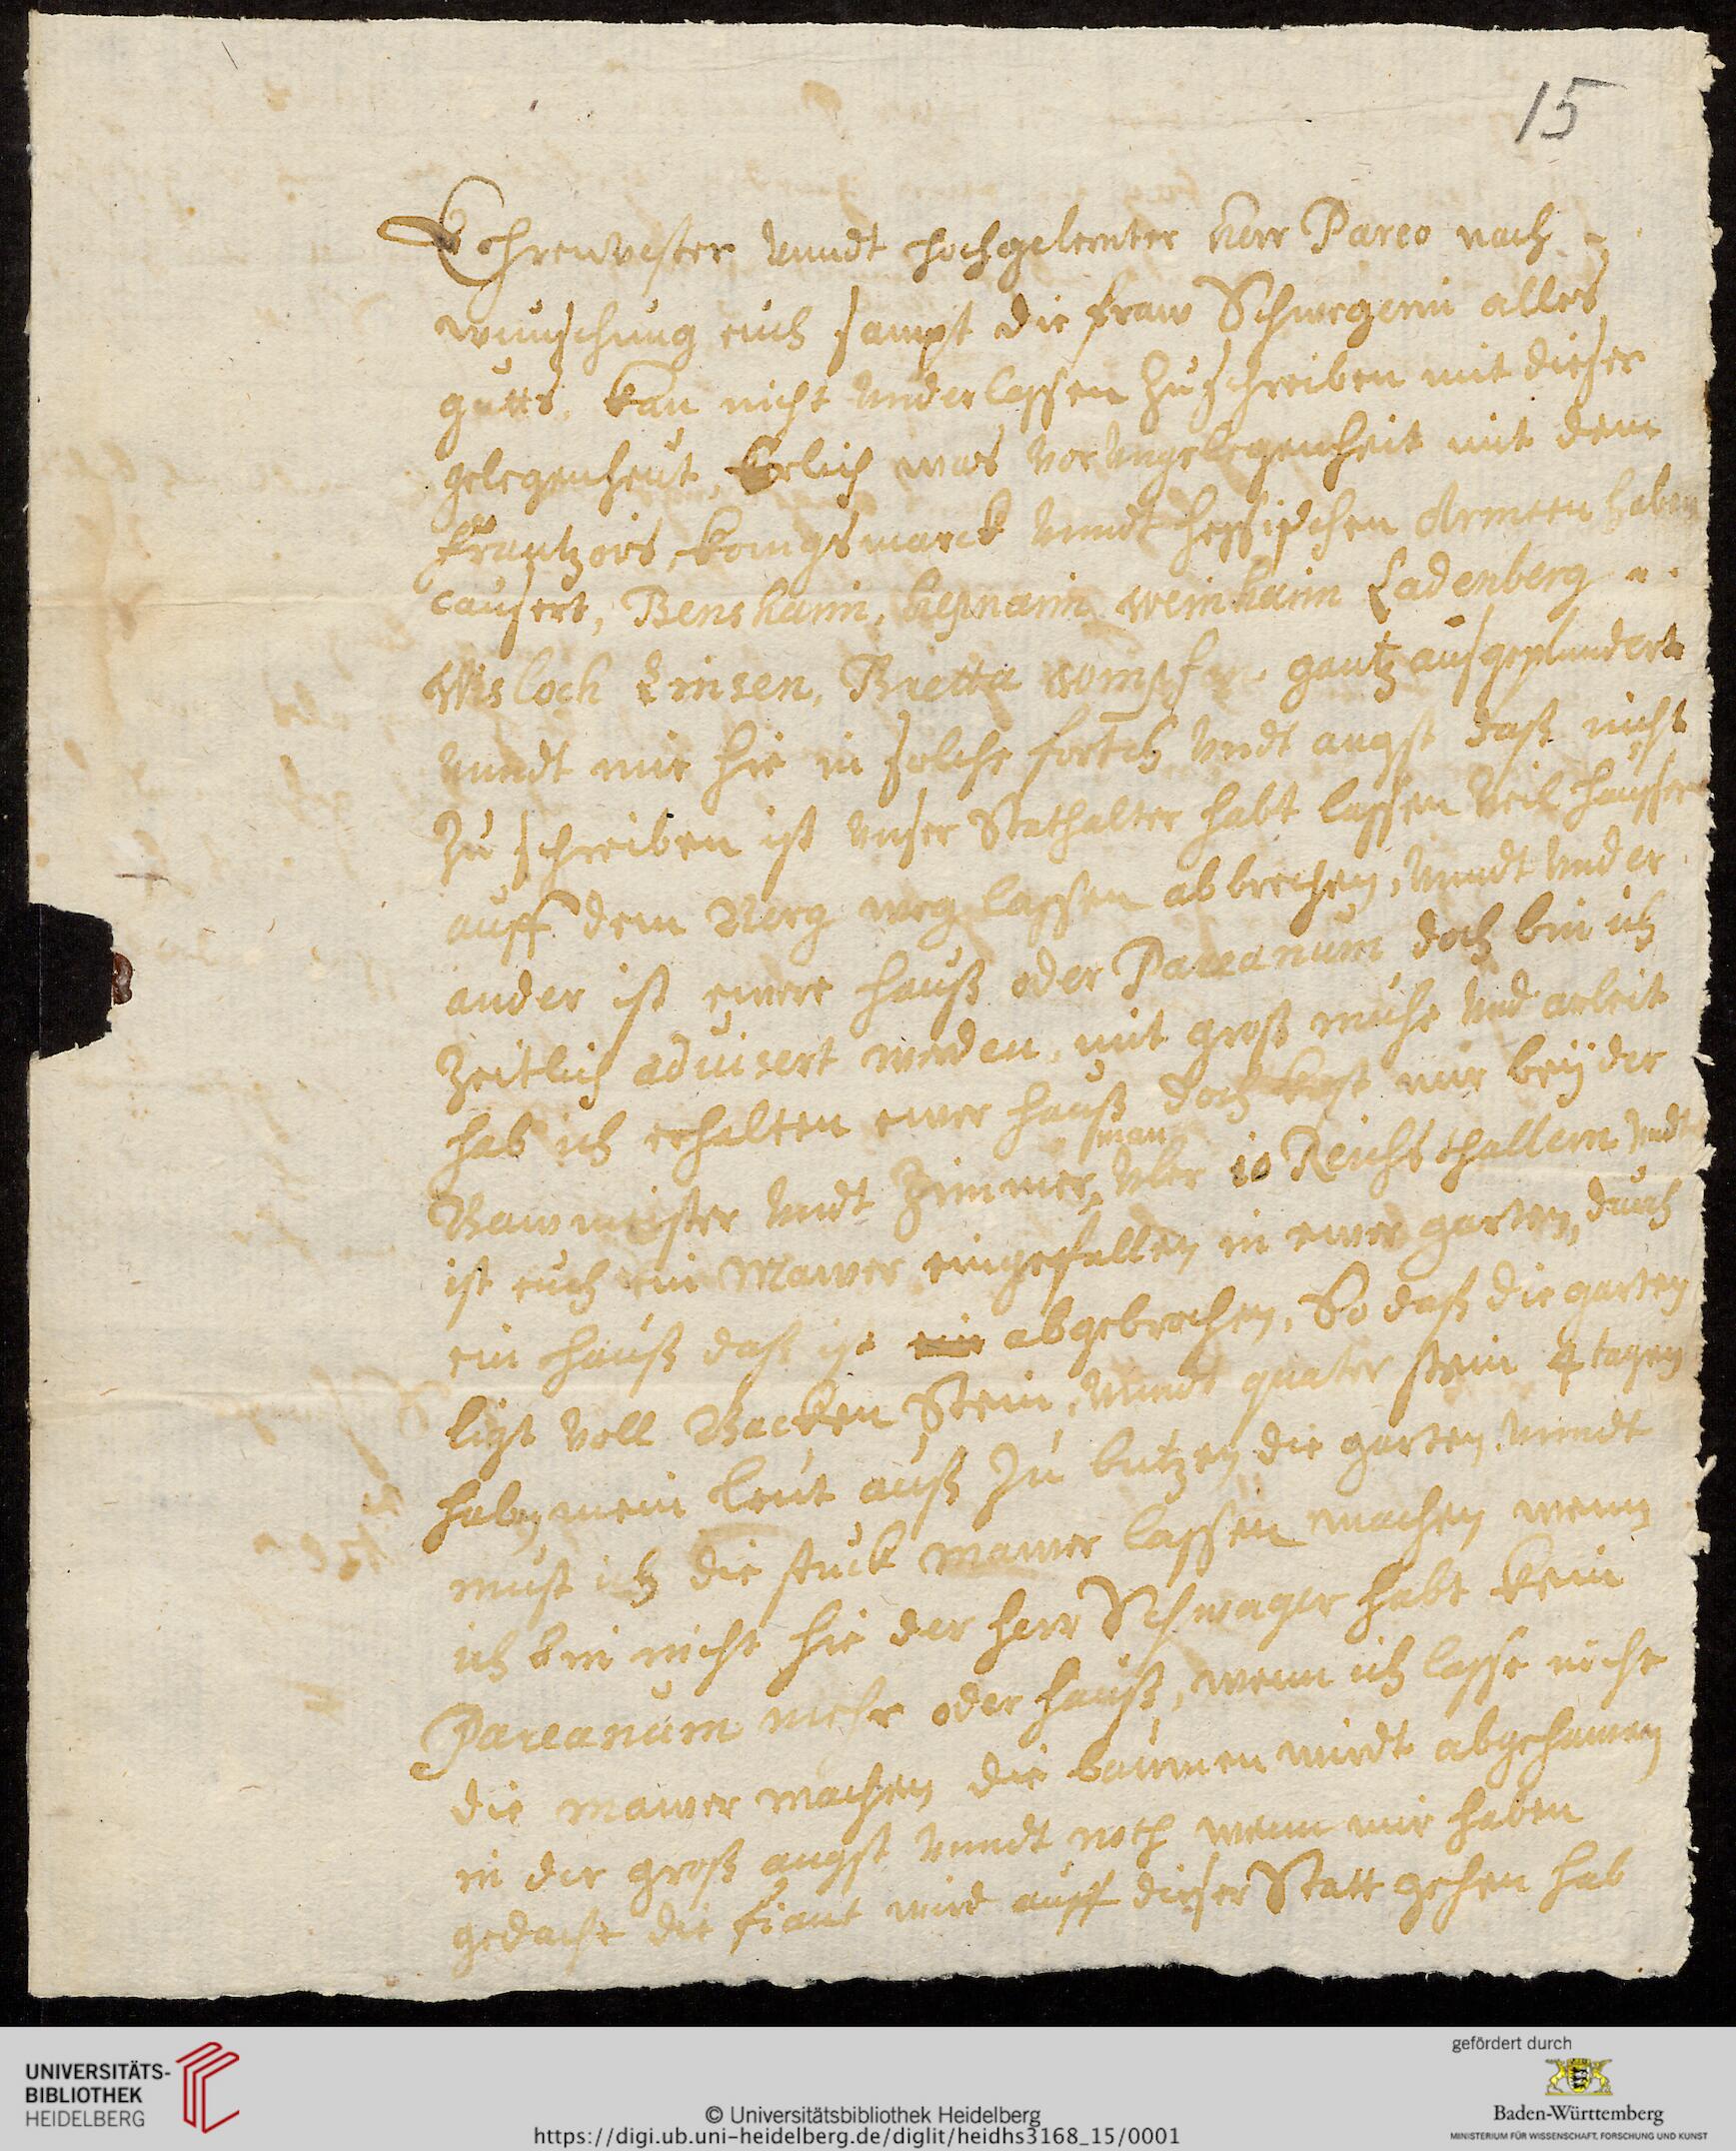 15
Ehrenvester unndt hochgelernter herr Pareo nach
wunschung euch sampt die fraw Schwegerin alles
gutts, kan nicht underlassen zu schreiben mit dieser
gelegenheut, Erlich was vor ungelegenheit mit dem
frantzois, konigsmarck unndt hessischen Armeen haben
causert, Benshaim, hepnaim weinhaim Ladenberg
Wisloch Einsen, Bretta wimpfen gantz ausgeplundert
unndt mir hie in solche fortch undt angst daß nicht
zu schreiben ist unser Stathalter habt lassen veil heusser
auff dem Berg weg lassen abbrechen, unndt under
ander ist ewere hauß oder Pareanum doch bin ich
zeitlich advisert worden, mit groß muhe und arbeit
hab ich erhalten ewer hauß doch kost mir beÿ der
Bawmeister undt Zimmerman uber 10 Reichsthallern undt
ist euch ein Mawer eingefallen in ewer garten, durch
ein hauß daß ist abgebrochen, So daß die garten
ligt voll Backen Stein, unndt quater stein 4 tagen
haben mein leut auß zu butzen die garten unndt
must ich die stuck mawer lassen machen wenn
ich bin nicht hie der herr Schwager habt kein
Pareanum mehr oder hauß, wenn ich lasse nicht
die mawer machen die baumen wirdt abgehawen
in der groß angst unndt noth wenn mir haben
gedacht die fiant wird auff dieser Statt gehen hab
UNIVERSITÄTS-
BIBLIOTHEK
HEIDELBERG
© Universitätsbibliothek Heidelberg
https://digi.ub.uni-heidelberg.de/diglit/heidhs3168_15/0001
gefördert durch
Baden-Württemberg
MINISTERIUM FÜR WISSENSCHAFT, FORSCHUNG UND KUNST